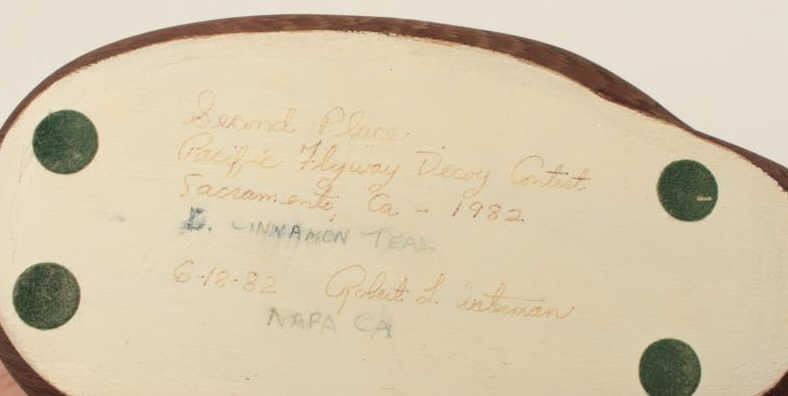 Second Place
Pacific Flyway Decoy Contest
Sacramento, Ca - 1982
CINNAMON TEAL
6-18-82 Robert L.
NAPA CA